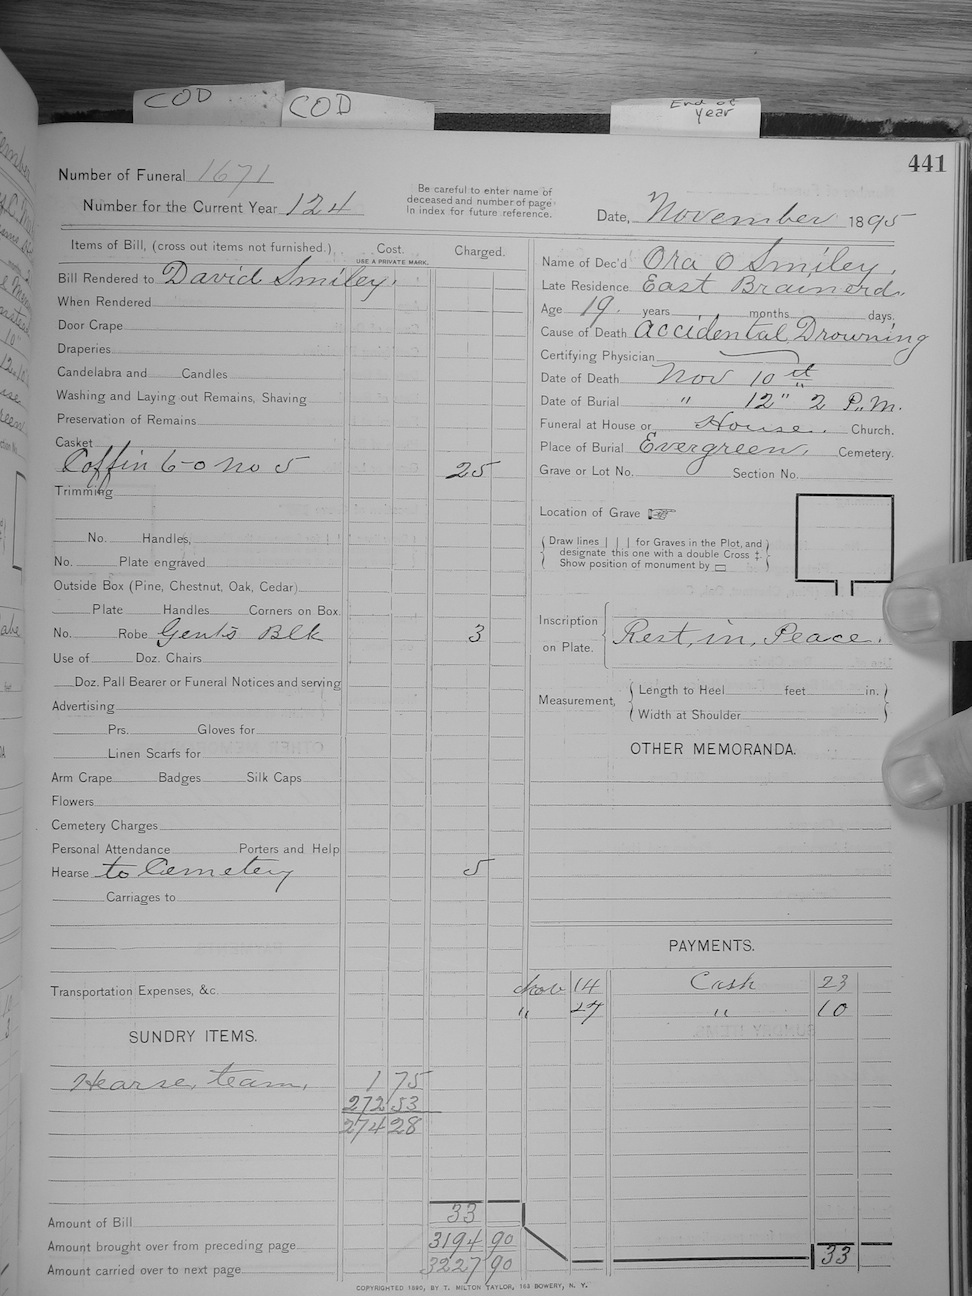 COD
COD
End of
year
441
Number of Funeral 1671
Number for the Current Year 124
Be careful to enter name of
deceased and number of page
in index for future reference.
Date, November 1895
Items of Bill, (cross out items not furnished.)
Cost.
USE A PRIVATE MARK.
Charged.
Bill Rendered to David Smiley.
When Rendered
Door Crape
Draperies
Candelabra and Candles
Washing and Laying out Remains, Shaving
Preservation of Remains
Casket
Coffin 6-0 no 5 25
Trimming
No. Handles,
No. Plate engraved
Outside Box (Pine, Chestnut, Oak, Cedar)
Plate Handles Corners on Box
No. Robe Gent's Blk 3
Use of Doz. Chairs
Doz. Pall Bearer or Funeral Notices and serving
Advertising
Prs. Gloves for
Linen Scarfs for
Arm Crape Badges Silk Caps
Flowers
Cemetery Charges
Personal Attendance Porters and Help
Hearse to Cemetery 5
Carriages to
Transportation Expenses, &c.
SUNDRY ITEMS.
Hearse, team, 1 75
272 53
274 28
Amount of Bill 33
Amount brought over from preceding page 3194 90
Amount carried over to next page 3227 90
Name of Dec'd Ora O Smiley.
Late Residence East Brainerd.
Age 19. years months days.
Cause of Death Accidental Drowning
Certifying Physician
Date of Death Nov 10th
Date of Burial " 12" 2 P.M.
Funeral at House or House. Church.
Place of Burial Evergreen. Cemetery.
Grave or Lot No. Section No.
Location of Grave
Draw lines | | | for Graves in the Plot, and
designate this one with a double Cross ‡.
Show position of monument by ▭
Inscription
on Plate.
Rest, in, Peace.
Measurement,
Length to Heel feet in.
Width at Shoulder
OTHER MEMORANDA.
PAYMENTS.
Nov 14 Cash 23
" 27 " 10
33
COPYRIGHTED 1890, BY T. MILTON TAYLOR, 163 BOWERY, N. Y.